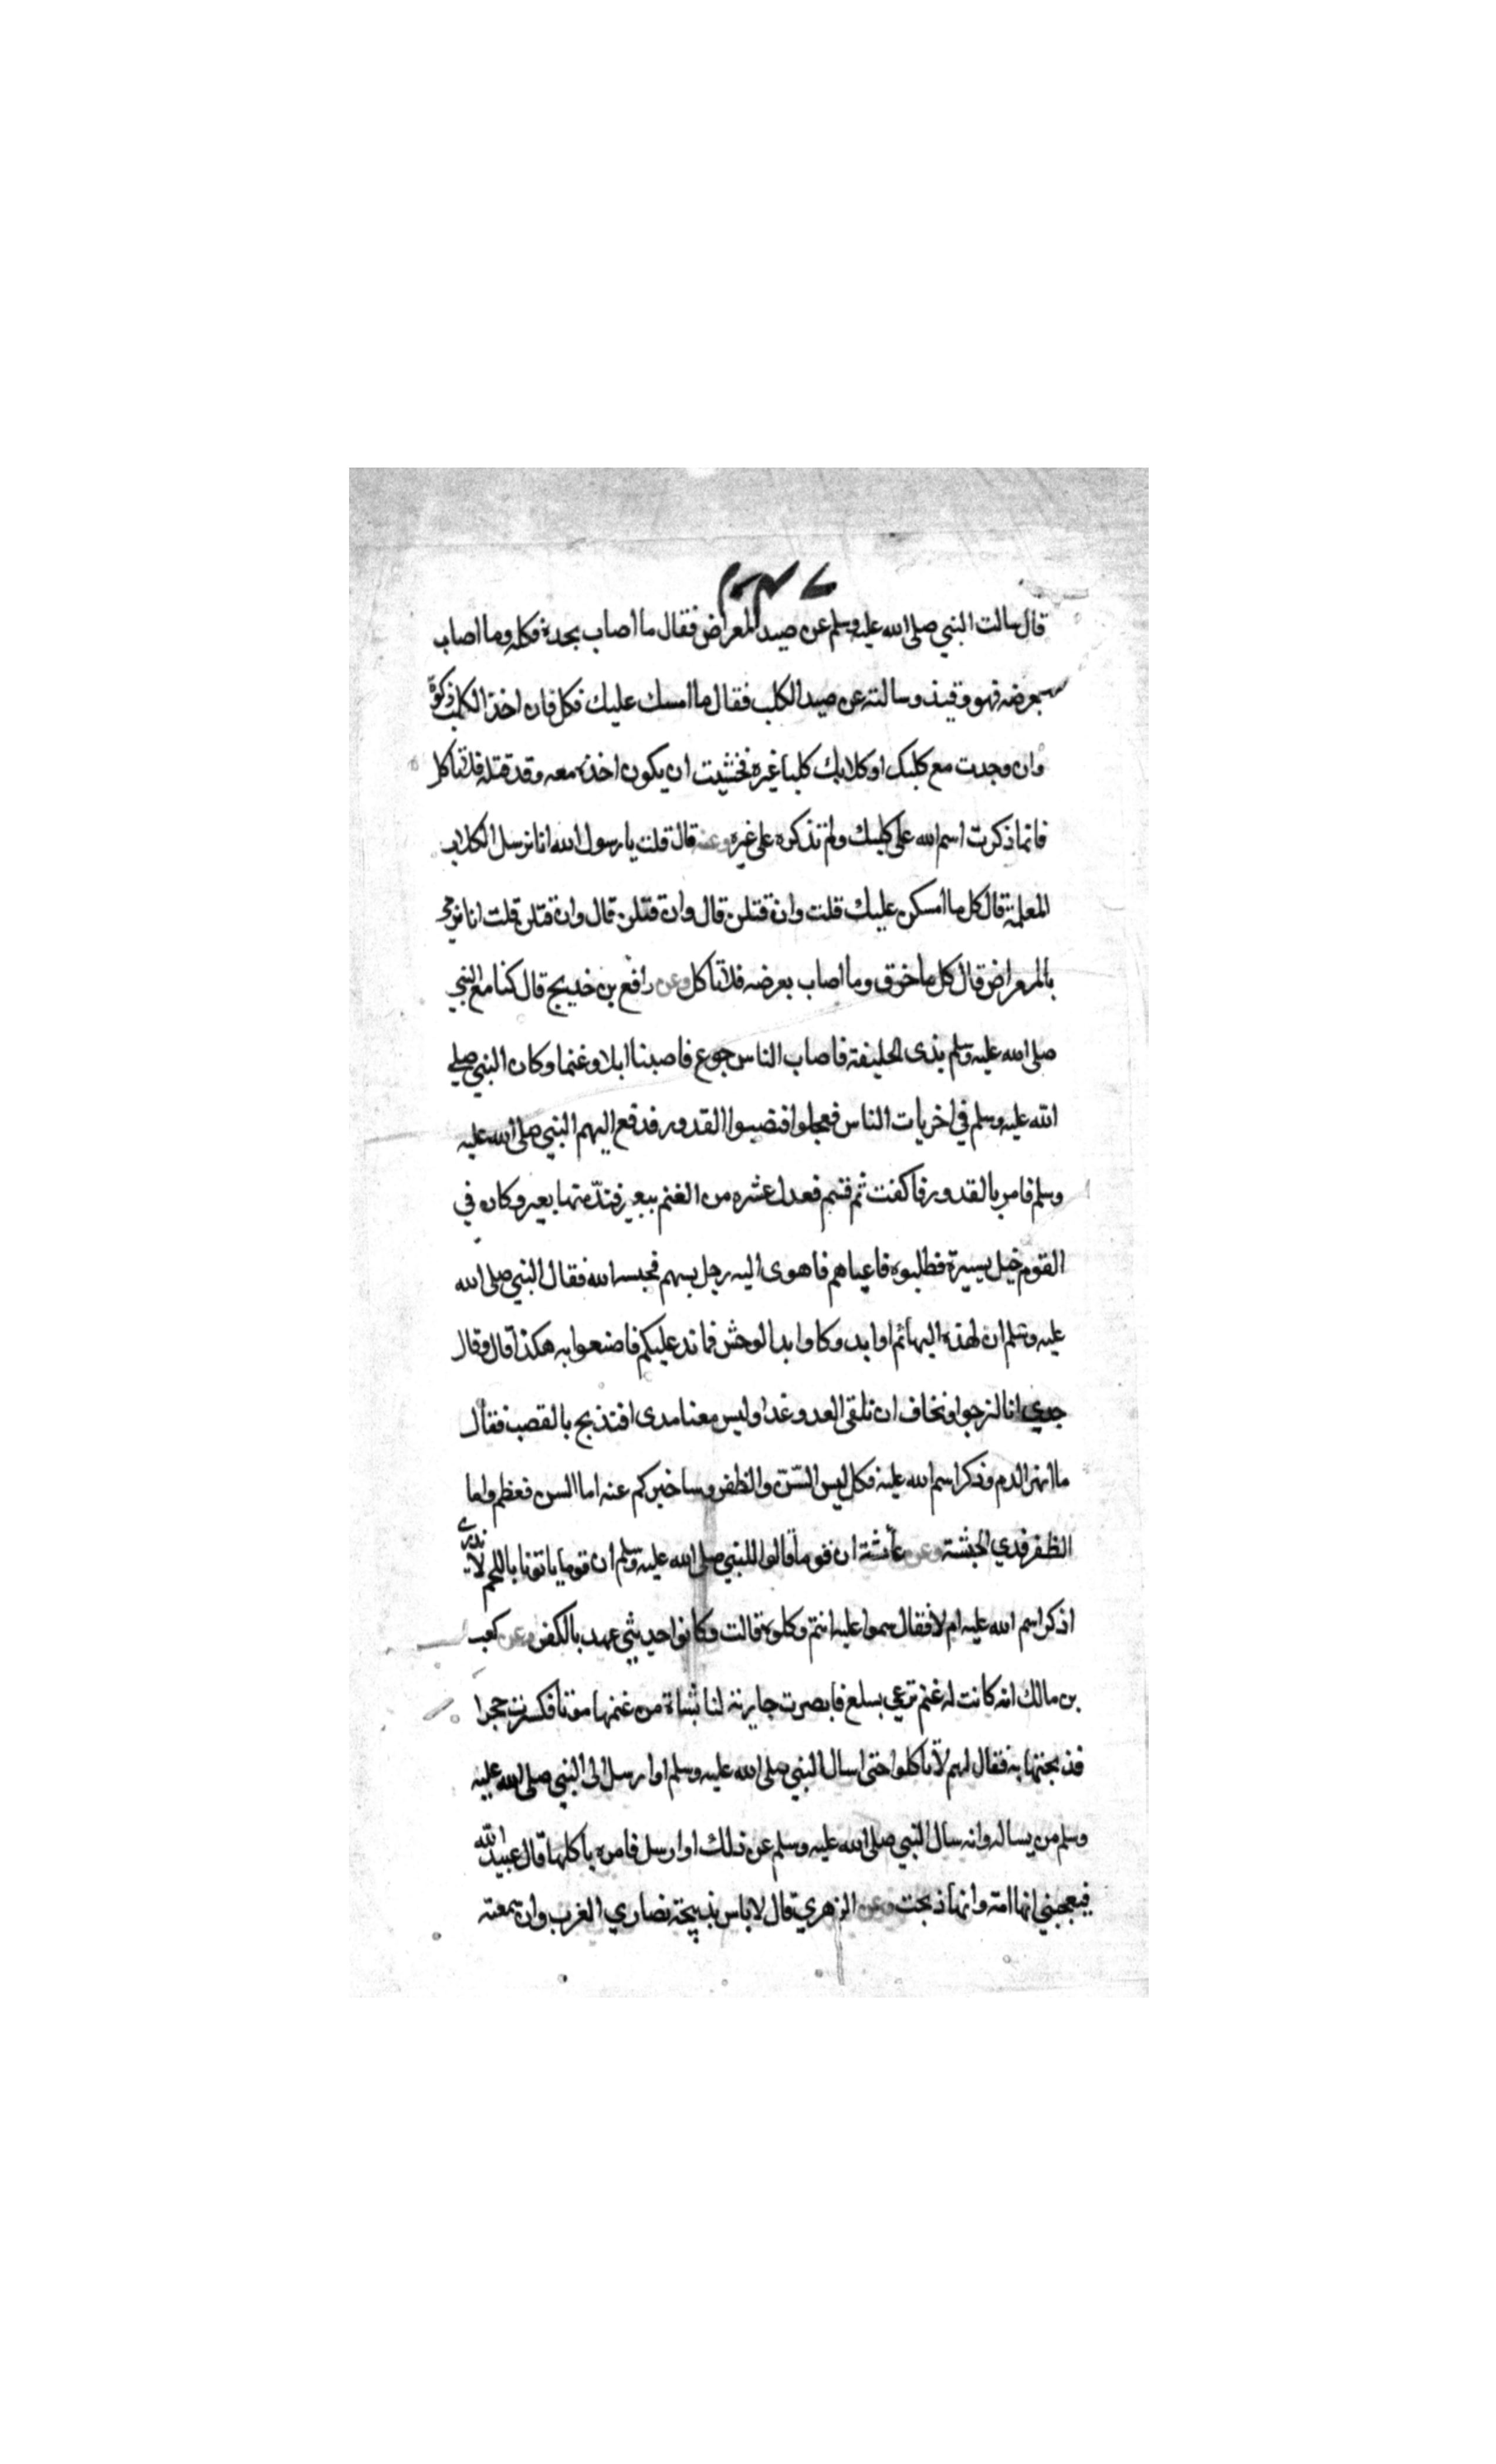 قال سالت النبي صلى الله عليه وسلم عن صيد المعراض فقال ما اصاب بحده فكله وما اصاب
بعرضه فهو وقيذ وسالته عن صيد الكلب فقال ما امسك عليك فكل فان اخذ الكلب ذكوة
وان وجدت مع كلبك او كلابك كلبا غيره فخشيت ان يكون اخذه معه وقد قتله فلا تاكل
فانما ذكرت اسم الله على كلبك ولم تذكره على غيره وعنه قال قلت يا رسول الله انا نرسل الكلاب
المعلمة قال كل ما امسكن عليك قلت وان قتلن قال وان قتلن قال وان قتلن قلت انا نرمي
بالمعراض قال كل ما خرق وما اصاب بعرضه فلا تاكل وعن رافع بن خديج قال كنا مع النبي
صلى الله عليه وسلم بذى الحليفة فاصاب الناس جوع فاصبنا ابلا وغنما وكان النبي صلي
الله عليه وسلم في اخريات الناس فعجلوا فنصبوا القدور فدفع اليهم النبي صلى الله عليه
وسلم فامر بالقدور فاكفت ثم قسم فعدل عشره من الغنم ببعير فندّ منها بعير وكان في
القوم خيل يسيرة فطلبوه فاعياهم فاهوى اليه رجل بسهم فحبسه الله فقال النبي صلى الله
عليه وسلم ان لهذه البهائم اوابد وكاوابد الوحش فما ند عليكم فاصنعوا به هكذا قال وقال
جدي انا لنرجوا ونخاف ان نلقى العدو غدا وليس معنا مدى افنذبح بالقصب فقال
ما انهر الدم وذكر اسم الله عليه فكل ليس السّن والظفر وساخبركم عنه اما السن فعظم واما
الظفر فمدي الحبشة وعن عائشة ان قوما قالوا للنبي صلى الله عليه وسلم ان قوما ياتونا باللحم لا ندري
اذكر اسم الله عليه ام لا فقال سموا عليه انتم وكلوه قالت وكانوا حديثي عهد بالكفر وعن كعب
بن مالك انه كانت له غنم ترعي بسلع فابصرت جارية لنا بشاة من غنمها موتا فكسرت حجرا
فذبحتها به فقال لهم لا تاكلوا حتى اسال النبي صلى الله عليه وسلم او ارسل الى النبي صلى الله عليه
وسلم من يساله وانه سال النبي صلى الله عليه وسلم عن ذلك او ارسل فامره باكلها قال عبيد الله
فيعجبني انها امة وانها ذبحت وعن الزهري قال لا باس بذبيحة نصاري العرب وان سمعته